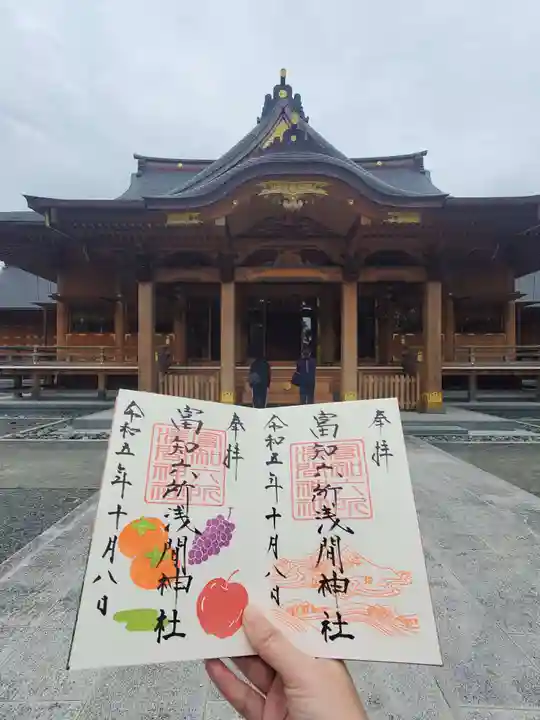 奉拝
富知六所浅間神社
令和五年十月八日
奉拝
富知六所浅間神社
令和五年十月八日